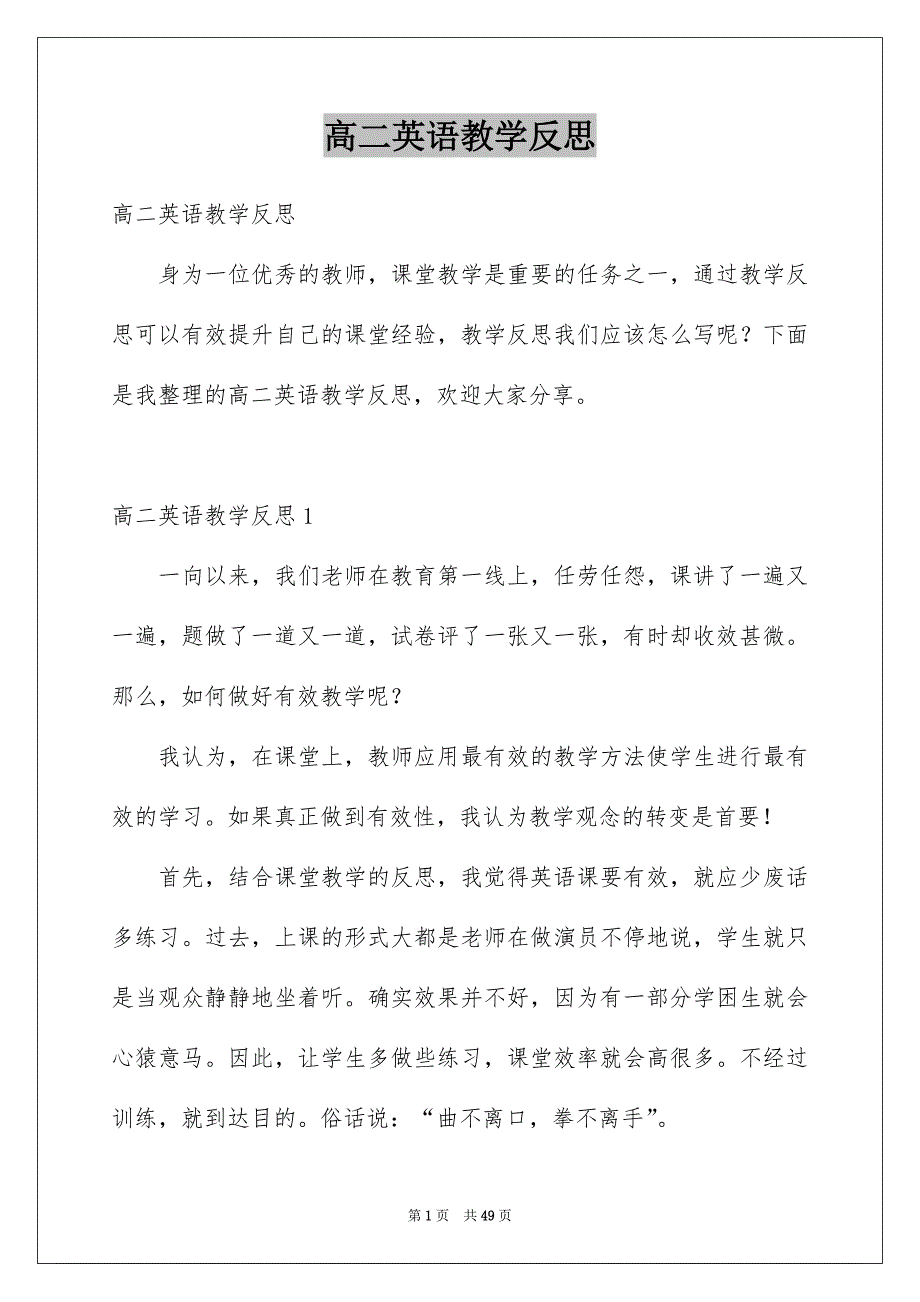 高二英语教学反思
高二英语教学反思
身为一位优秀的教师，课堂教学是重要的任务之一，通过教学反
思可以有效提升自己的课堂经验，教学反思我们应该怎么写呢？下面
是我整理的高二英语教学反思，欢迎大家分享。
高二英语教学反思1
一向以来，我们老师在教育第一线上，任劳任怨，课讲了一遍又
一遍，题做了一道又一道，试卷评了一张又一张，有时却收效甚微。
那么，如何做好有效教学呢？
我认为，在课堂上，教师应用最有效的教学方法使学生进行最有
效的学习。如果真正做到有效性，我认为教学观念的转变是首要！
首先，结合课堂教学的反思，我觉得英语课要有效，就应少废话
多练习。过去，上课的形式大都是老师在做演员不停地说，学生就只
是当观众静静地坐着听。确实效果并不好，因为有一部分学困生就会
心猿意马。因此，让学生多做些练习，课堂效率就会高很多。不经过
训练，就到达目的。俗话说：“曲不离口，拳不离手”。
第1页 共49页